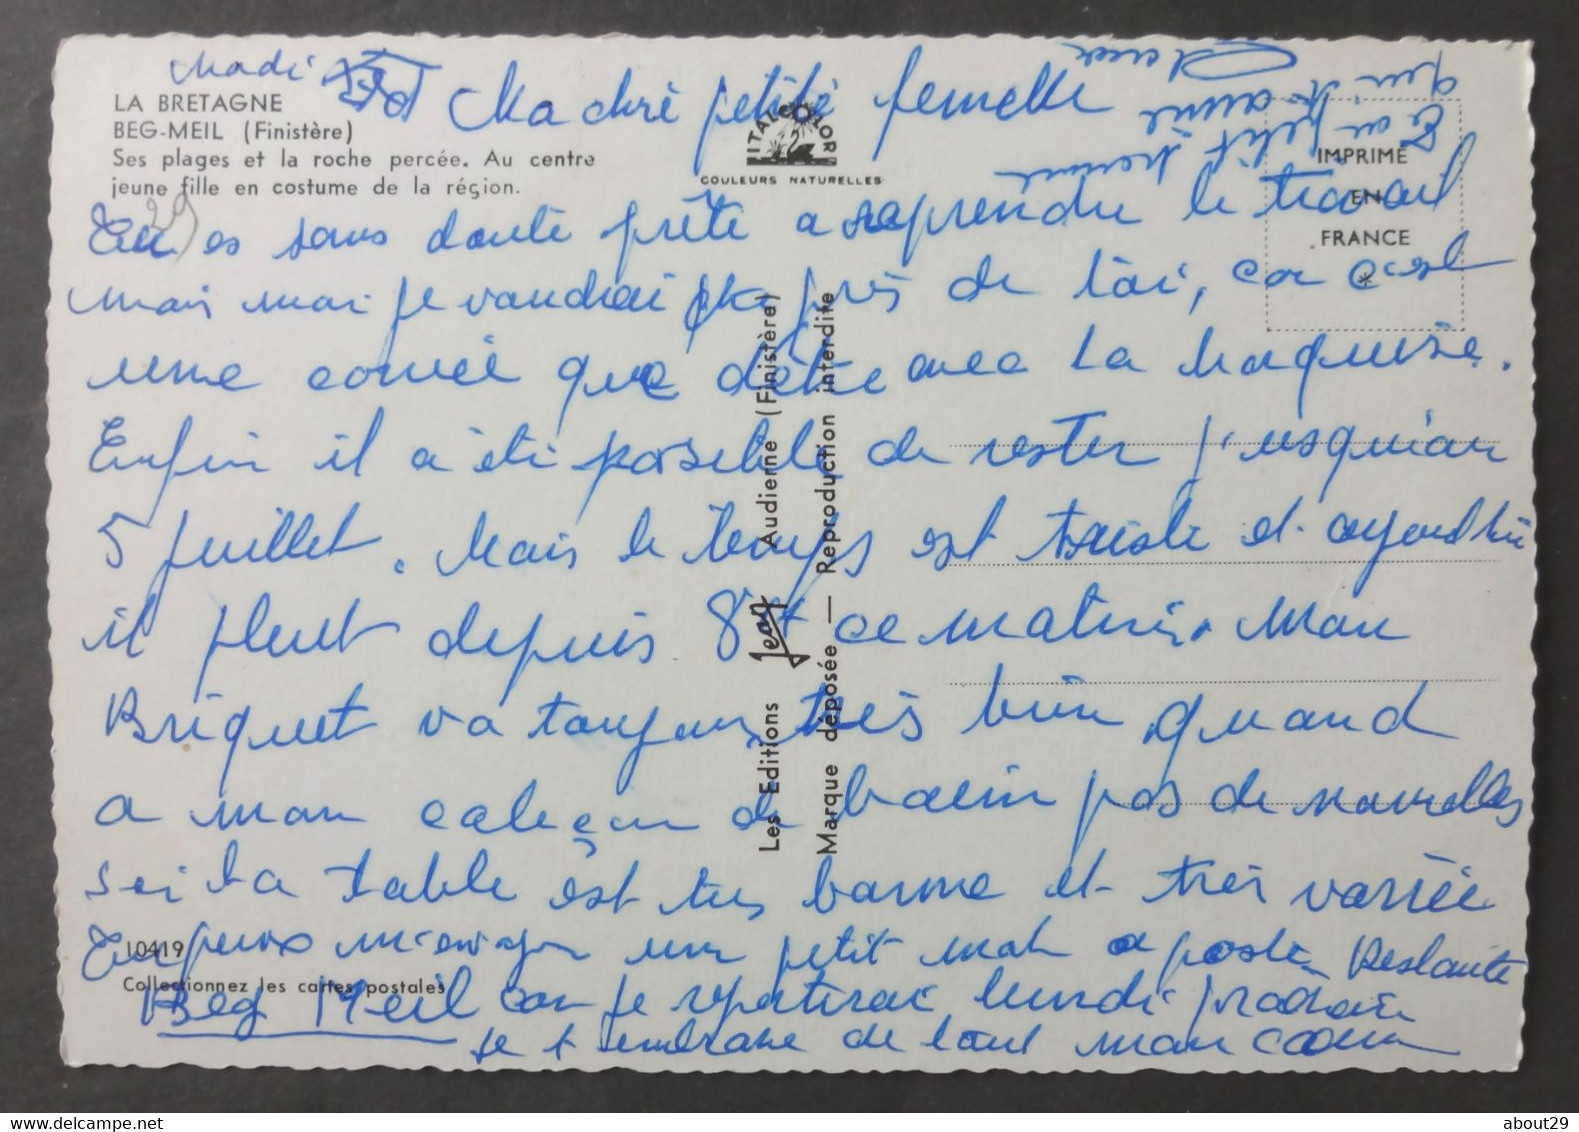 LA BRETAGNE
BEG-MEIL (Finistère)
Ses plages et la roche percée. Au centre
jeune fille en costume de la région.
ITALCOLOR
COULEURS NATURELLES
IMPRIMÉ
EN
FRANCE
*
Ma chré petite femelle
Tu es sans doute prête a reprendre le travail
mais moi je voudrai près de toi, car c'est
une corvée que d'être avec la Marquise.
Enfin il a été possible de rester jusqu'au
5 juillet. Mais le temps est triste et aujourd'hui
il pleut depuis 8h ce matin. Mon
Briquet va toujours très bien, quand
a mon caleçon de bain pas de nouvelles
ici la table est très bonne et très variée
Tu peux m'envoyer un petit mot a poste Restante
Beg Meil car je repartirai lundi prochain
je t embrasse de tout mon coeur
petit homme
qui t'aime
Les Editions Jean Audierne (Finistère)
Marque déposée — Reproduction interdite
10419
Collectionnez les cartes postales
about29